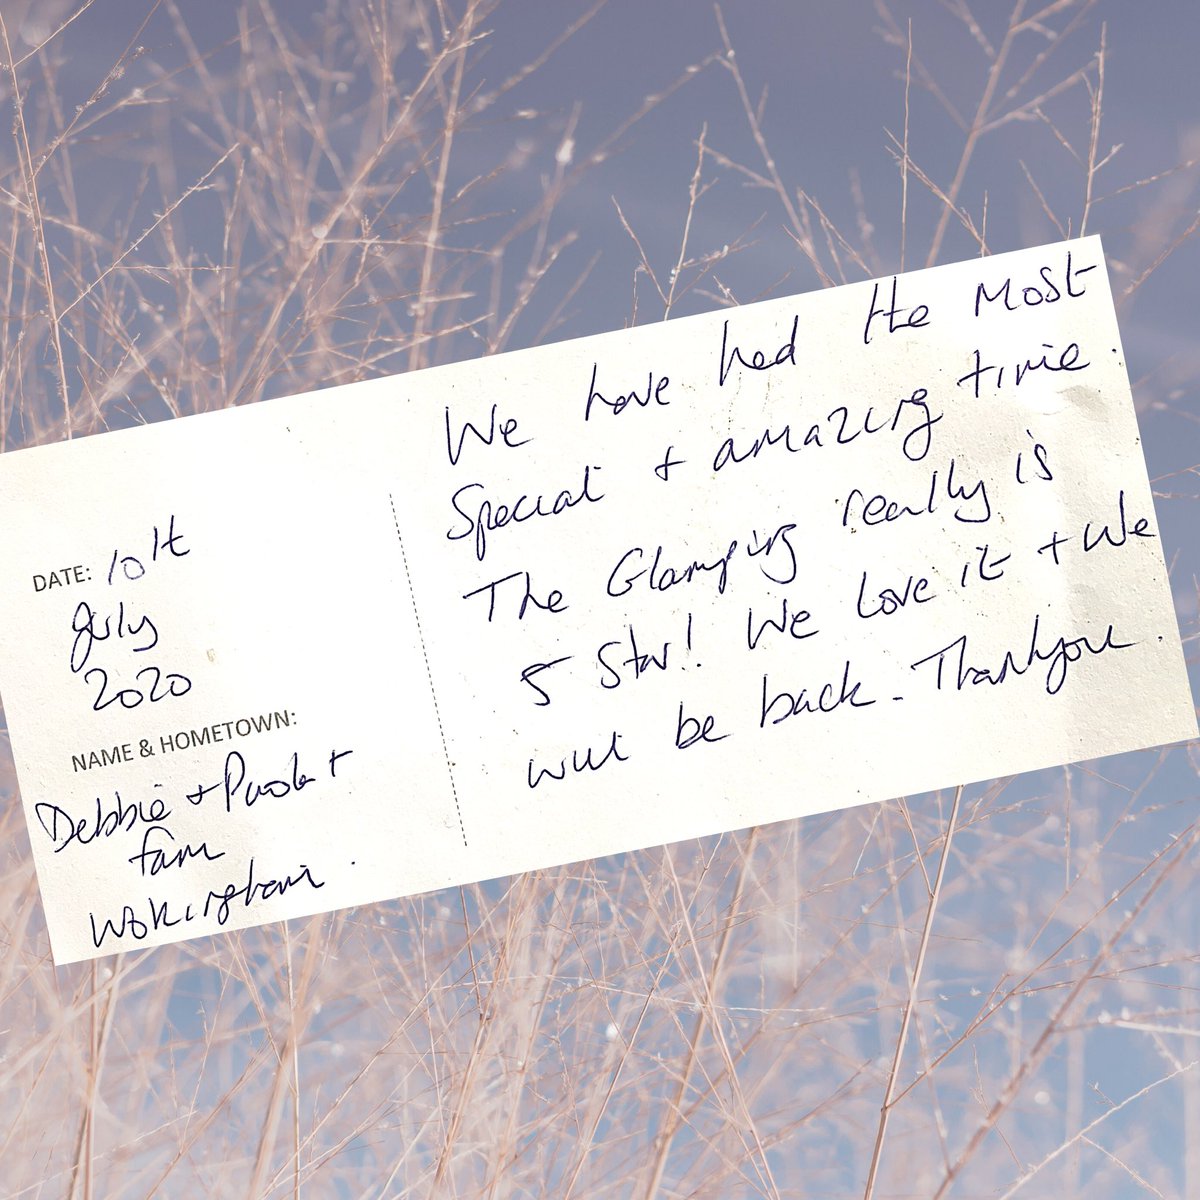 DATE: 10th
July
2020
NAME & HOMETOWN:
Debbie + Paola +
fam
Wokingham.
We have had the most
Special + amazing time.
The Glamping really is
5 Star! We Love it + We
will be back - Thankyou.